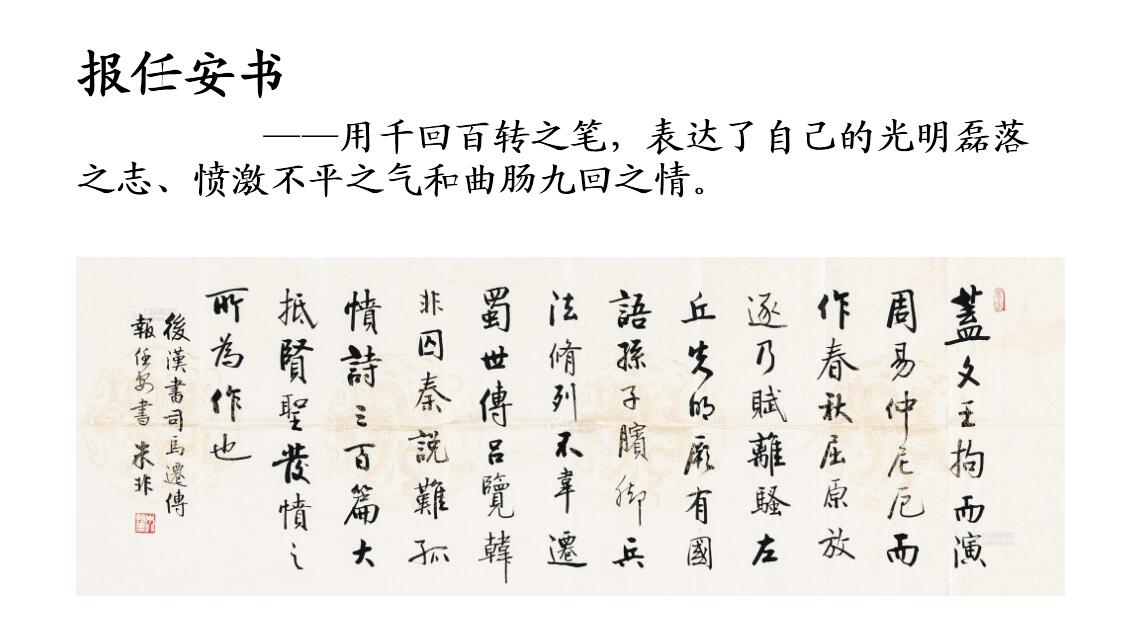 报任安书
——用千回百转之笔，表达了自己的光明磊落
之志、愤激不平之气和曲肠九回之情。
蓋文王拘而演
周易仲尼厄而
作春秋屈原放
逐乃賦離騷左
丘失明厥有國
語孫子臏脚兵
法脩列不韋遷
蜀世傳呂覽韓
非囚秦說難孤
憤詩三百篇大
抵賢聖發憤之
所為作也
後漢書司馬遷傳
報任安書 米非